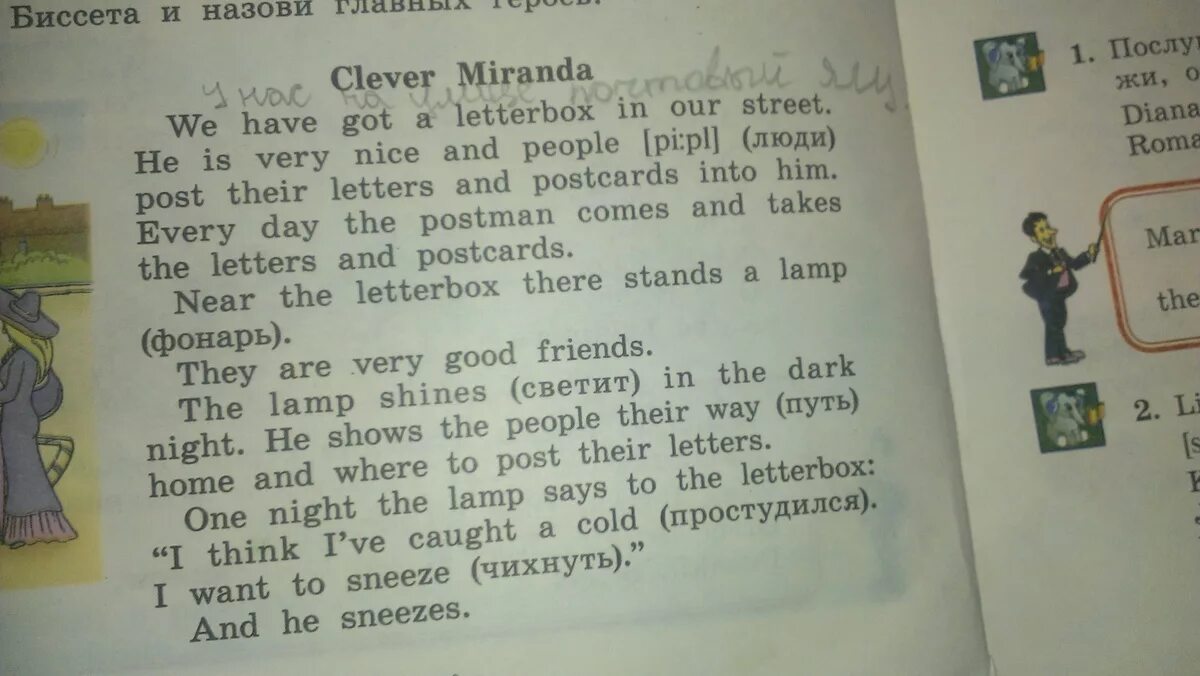 Биссета и назови главных героев.
Clever Miranda
У нас на улице почтовый ящ
We have got a letterbox in our street.
He is very nice and people [pi:pl] (люди)
post their letters and postcards into him.
Every day the postman comes and takes
the letters and postcards.
Near the letterbox there stands a lamp
(фонарь).
They are very good friends.
The lamp shines (светит) in the dark
night. He shows the people their way (путь)
home and where to post their letters.
One night the lamp says to the letterbox:
“I think I’ve caught a cold (простудился).
I want to sneeze (чихнуть).”
And he sneezes.
1. Послу
жи, о
Diana
Roma
Mar
the
2. Li
[s
K